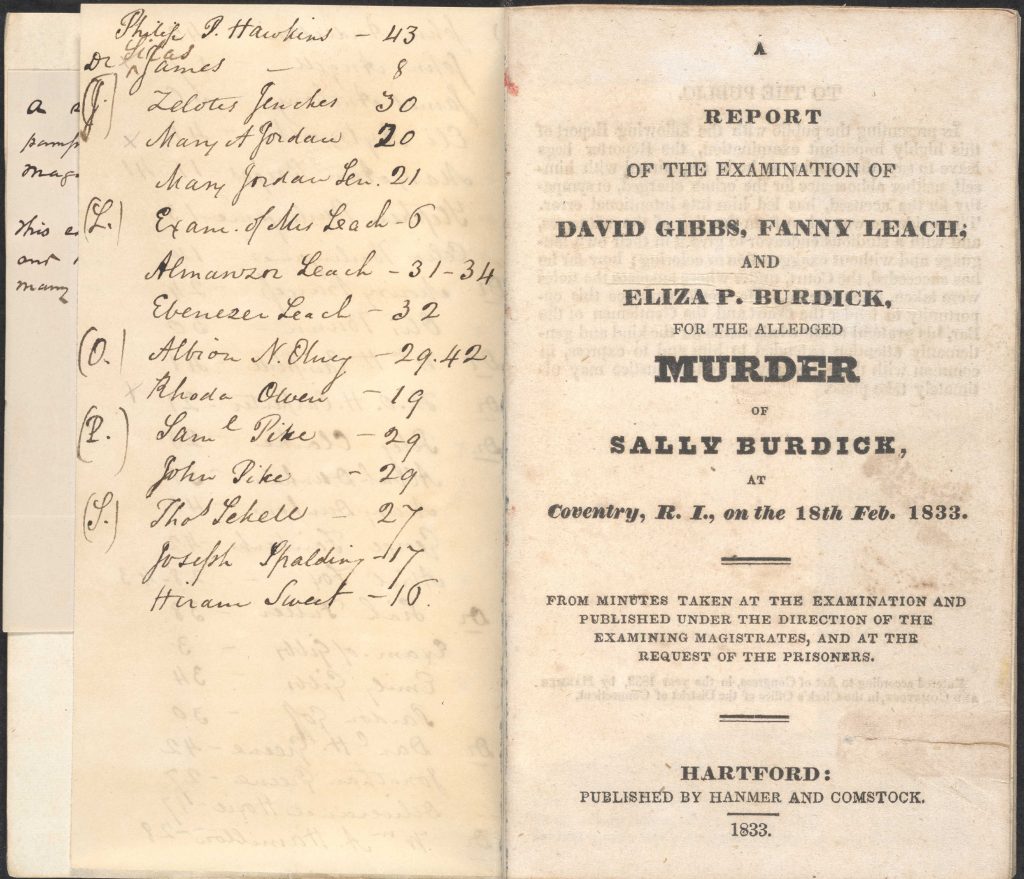 Philip P. Hawkins – 43
Silas
Dr ^ James – 8
(J.) Zelotes Jenckes 30
x Mary A Jordan 20
Mary Jordan Sen. 21
(L.) Exam. of Mrs Leach – 6
Almanzor Leach – 31 – 34
Ebenezer Leach – 32
(O.) Albion N. Olney – 29. 42
x Rhoda Owen – 19
(P.) Saml Pike – 29
John Pike – 29
(S.) Thos Schell – 27
Joseph Spalding – 17
Hiram Sweet – 16.
a
pamp
mag
this e
out
many
A
REPORT
OF THE EXAMINATION OF
DAVID GIBBS, FANNY LEACH,
AND
ELIZA P. BURDICK,
FOR THE ALLEDGED
MURDER
OF
SALLY BURDICK,
AT
Coventry, R. I., on the 18th Feb. 1833.
FROM MINUTES TAKEN AT THE EXAMINATION AND
PUBLISHED UNDER THE DIRECTION OF THE
EXAMINING MAGISTRATES, AND AT THE
REQUEST OF THE PRISONERS.
HARTFORD:
PUBLISHED BY HANMER AND COMSTOCK.
1833.